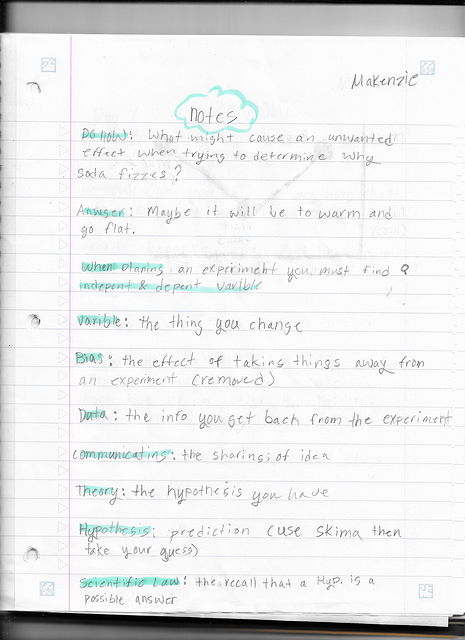 Makenzie
notes
Do now: What might cause an unwanted
effect when trying to determine why
soda fizzes?
Anwser: Maybe it will be to warm and
go flat.
When planing an experiment you must find
indepent & depent varible
Varible: the thing you change
Bias: the effect of taking things away from
an experiment (removed)
Data: the info you get back from the experiment
communicating: the sharings of idea
Theory: the hypothesis you have
Hypothesis: prediction (use skima then
take your guess)
Scientific Law: the recall that a Hyp. is a
possible answer